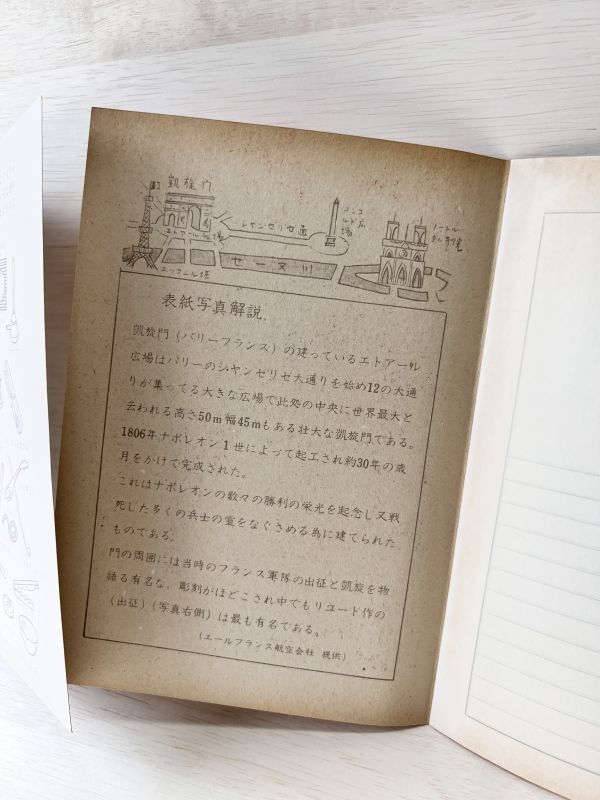 凱旋門
エトアール広場
シャンゼリゼ通
コンコ
ルド広
場
ノートル
セーヌ川
エッフール塔
表紙写真解説
凱旋門(パリーフランス)の建っているエトアール
広場はパリーのシャンゼリゼ大通りを始め12の大通
りが集ってる大きな広場で此処の中央に世界最大と
云われる高さ50m幅45mもある壮大な凱旋門である。
1806年ナポレオン1世によって起工され約30年の歳
月をかけて完成された。
これはナポレオンの数々の勝利の栄光を起念し又戦
死した多くの兵士の霊をなぐさめる為に建てられた
ものである。
門の周囲には当時のフランス軍隊の出征と凱旋を物
語る有名な、彫刻がほどこされ中でもリユード作の
(出征)(写真右側)は最も有名である。
(エールフランス航空会社 提供)